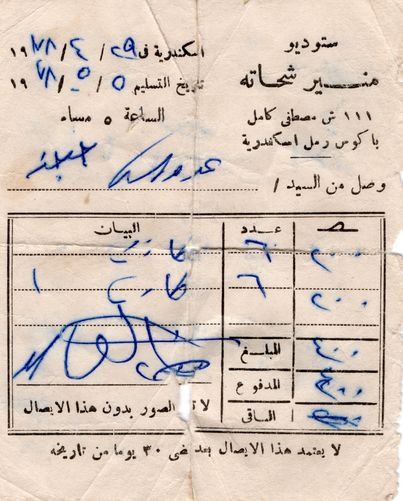 ستوديو
منير شحاته
١١١ ش مصطفى كامل
باكوس رمل اسكندرية
اسكندرية فى ٢٩/٤/١٩٧٨
تاريخ التسليم ٥/٥/١٩٧٨
الساعة ٥ مساء
وصل من السيد /
مـ عـدد البيان
٢٠٠ ٦ كارت
٢٠٠ ٦ كارت ١
المبلغ ٤٠٠
المدفوع
الباقى
الصور بدون هذا الايصال
لا يعتمد هذا الايصال بعد مضى ٣٠ يوما من تاريخه